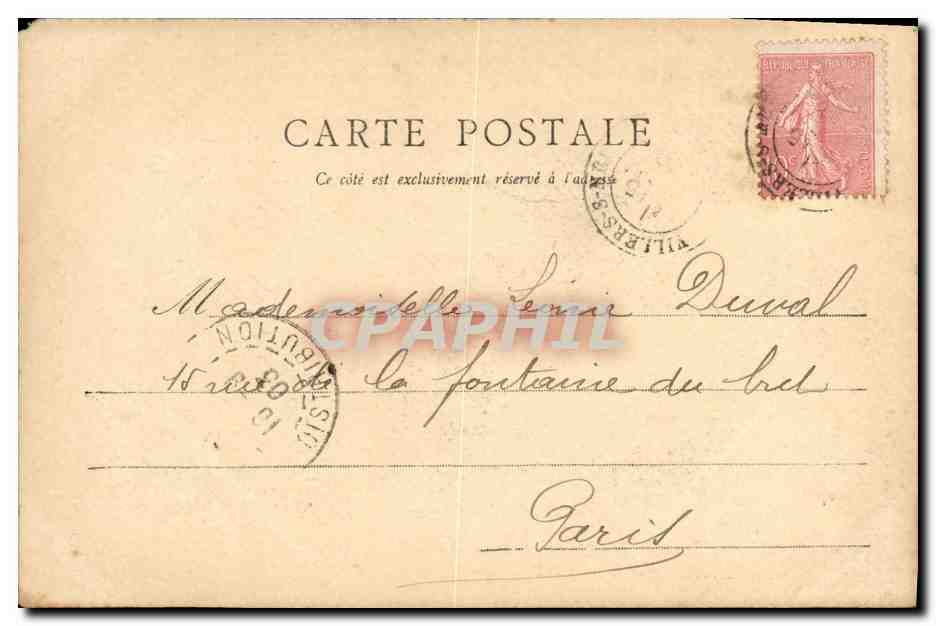 RÉPUBLIQUE FRANÇAISE
CARTE POSTALE
Ce côté est exclusivement réservé à l'adresse
VILLERS-S-
Mademoiselle Léonie Duval
CPAPHIL
DISTRIBUTION
03
15 rue de la fontaine du but
Paris